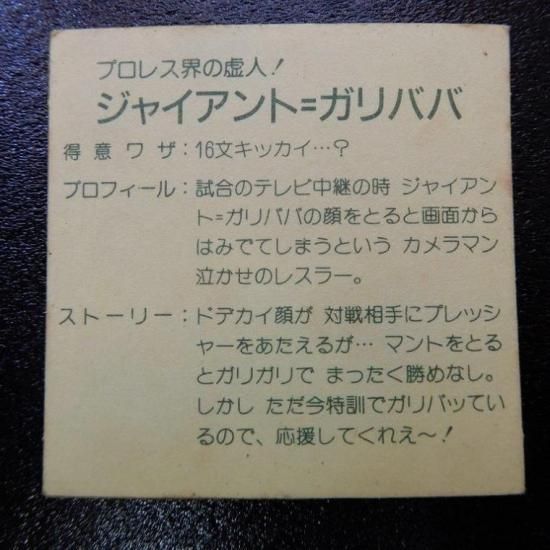 プロレス界の虚人!
ジャイアント=ガリババ
得意ワザ:16文キッカイ…?
プロフィール:試合のテレビ中継の時 ジャイアン
ト=ガリババの顔をとると画面から
はみでてしまうという カメラマン
泣かせのレスラー。
ストーリー:ドデカイ顔が 対戦相手にプレッシ
ャーをあたえるが… マントをとる
とガリガリで まったく勝めなし。
しかし ただ今特訓でガリバッてい
るので、応援してくれえ〜!